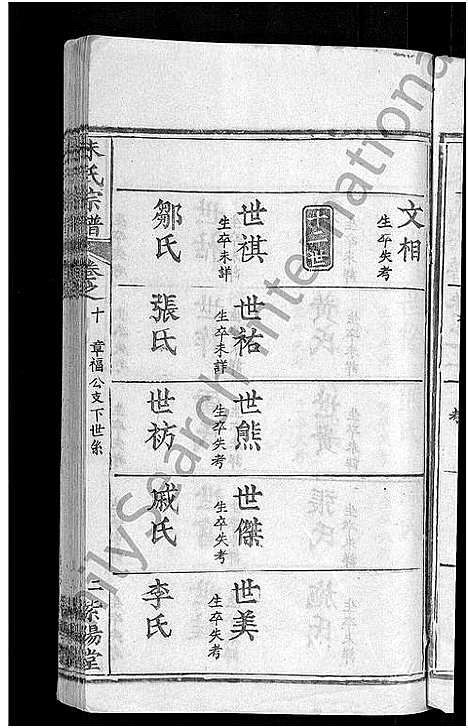 文相
生卒失考
十三世
世祺
生卒未詳
世祐
生卒未詳
世熊
生卒失考
世傑
生卒失考
世美
生卒失考
鄒氏
張氏
世祊
戚氏
李氏
朱氏宗譜
卷之十
章福公支下世系
二
紫陽堂